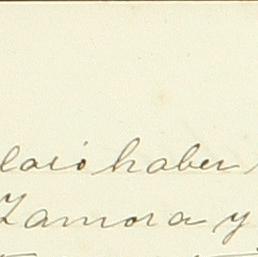 haber
Zamora y